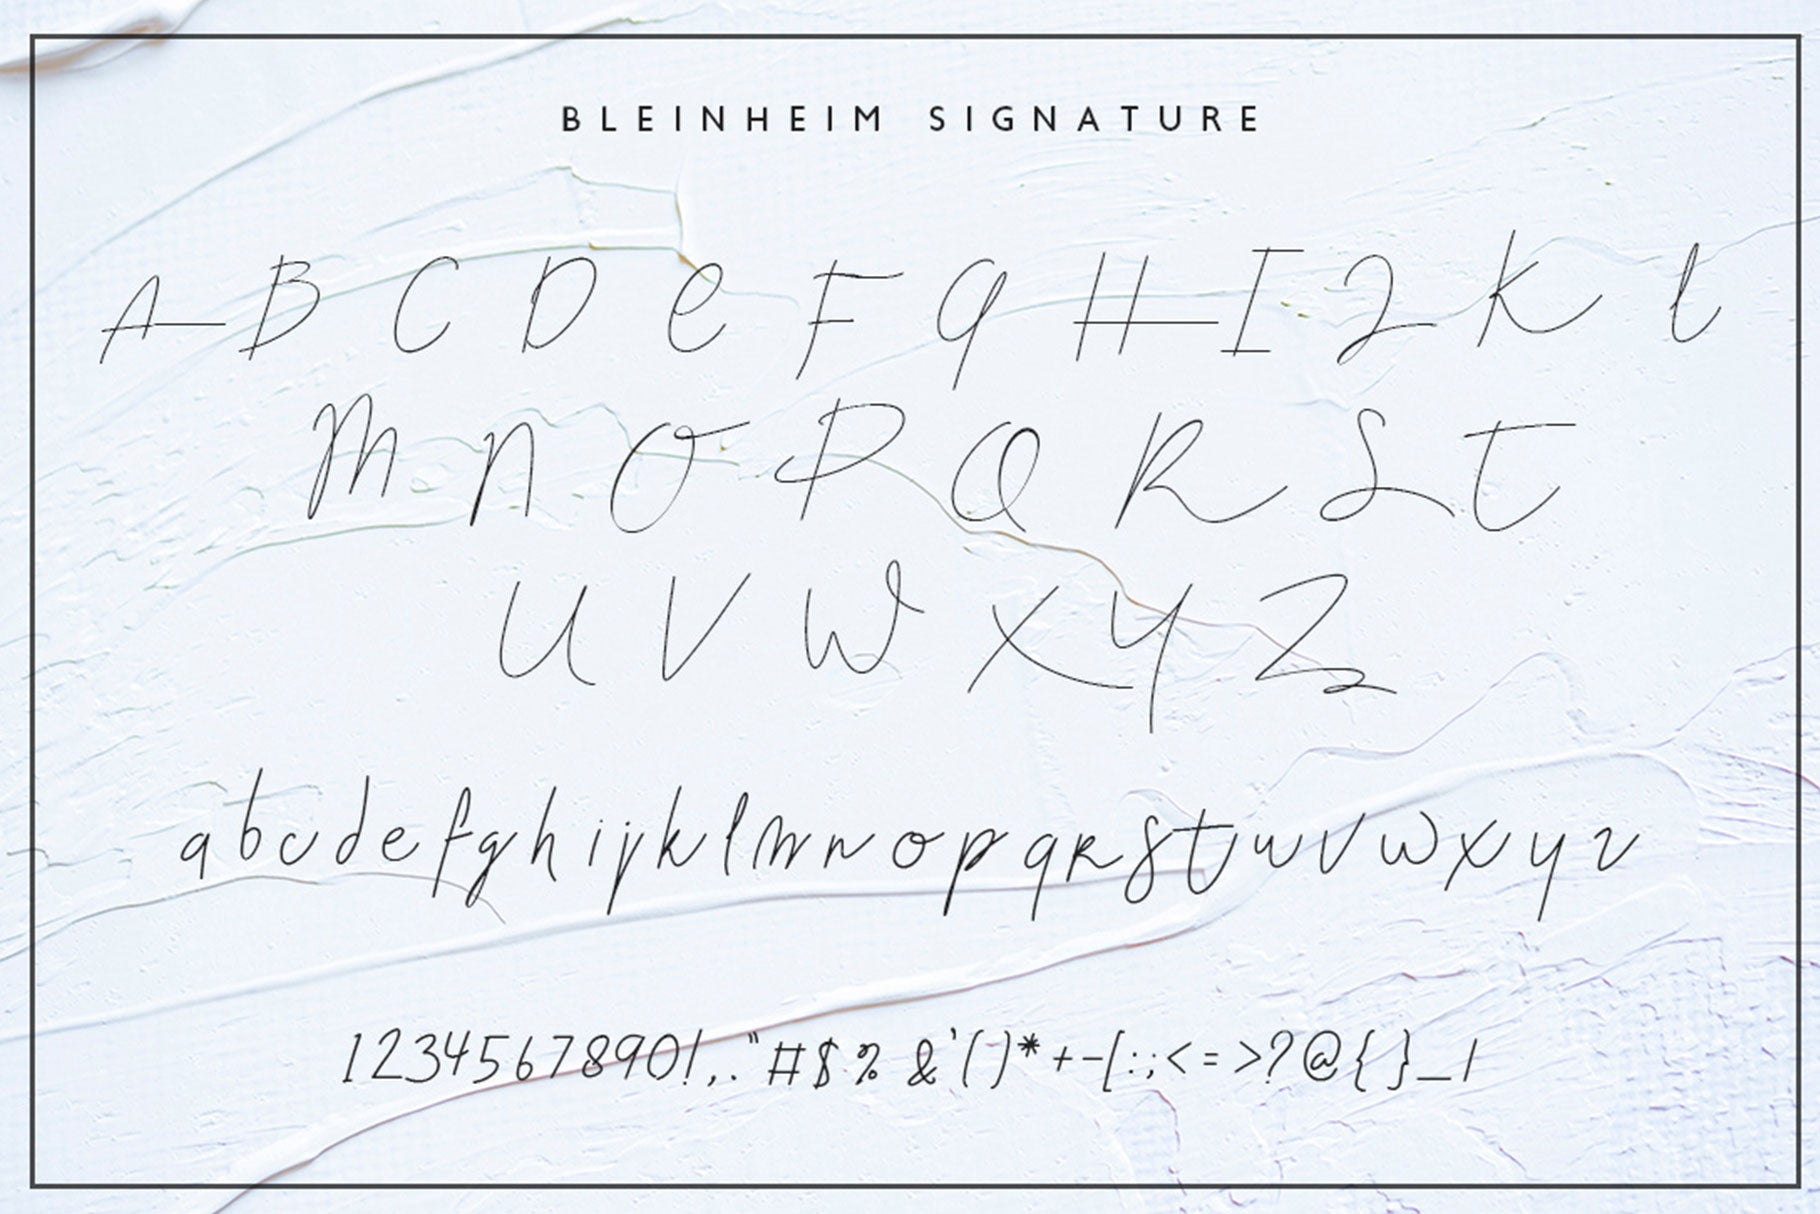 BLEINHEIM SIGNATURE
A B C D E F G H I J K L
M N O P Q R S T
U V W X Y Z
a b c d e f g h i j k l m n o p q r s t u v w x y z
1234567890!,."#$%&'()*+-[:;<=>?@{}_|